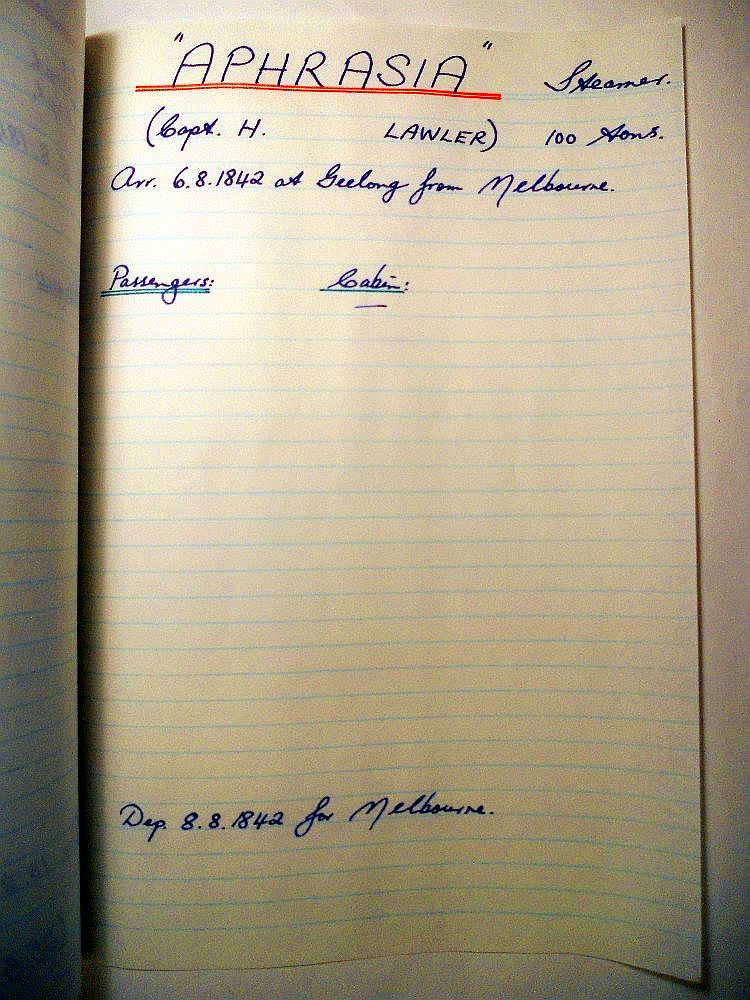 "APHRASIA" Steamer.
(Capt. H. LAWLER) 100 tons.
Arr. 6.8.1842 at Geelong from Melbourne.
Passengers: Cabin:
—
Dep. 8.8.1842 for Melbourne.